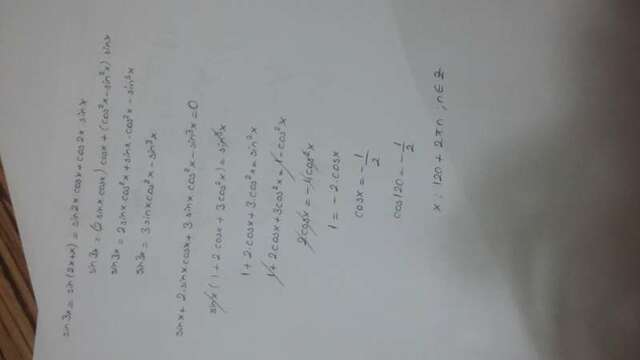 sin3x = sin(2x+x) = sin2x.cosx + cos2x sinx
sin3x = (2 sinx.cosx) cosx + (cos²x - sin²x) sinx
sin3x = 2 sinx.cos²x + sinx.cos²x - sin³x
sin3x = 3 sinx cos²x - sin³x
sinx + 2.sinx.cosx + 3.sinx.cos²x - sin³x = 0
sinx (1 + 2.cosx + 3cos²x) = sin³x
1 + 2.cosx + 3.cos²x = sin²x
1 + 2cosx + 3cos²x = 1 - cos²x
2cosx = -4cos²x
1 = -2.cosx
cosx = -1/2
cos120 = -1/2
x : 120 + 2πn ; n ∈ Z